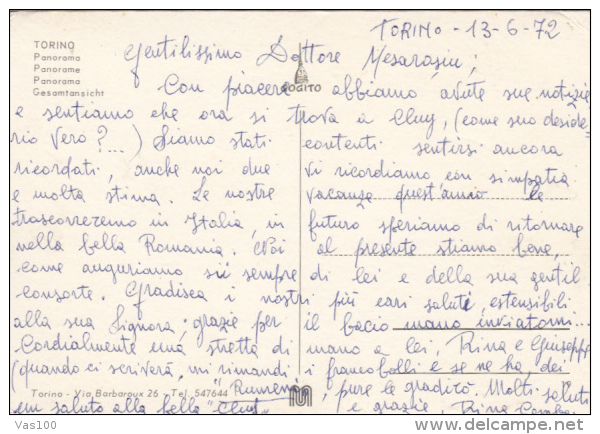 TORINO - 13-6-72
TORINO
Panorama
Panorame
Panorama
Gesamtansicht
Gentilissimo Dottore Mesarosiu;
ROGITO
Con piacere abbiamo avute sue notizie
e sentiamo che ora si trova a Cluj, (come suo deside-
rio vero?...) Siamo stati contenti sentirsi ancora
ricordati, anche noi due Vi ricordiamo con simpatia
e molta stima. Le nostre vacanze quest'anno le
trascorreremo in Italia, in futuro speriamo di ritornare
nella bella Romania. Noi al presente stiamo bene,
come auguriamo sii sempre di lei e della sua gentil
consorte. Gradisca i nostri più cari saluti, estensibili
alla sua Signora; grazie per il bacio mano inviatomi...
Cordialmente una stretta di mano a lei, Rina e Giuseppe
(quando ci scriverà, mi rimandi i francobolli e se ne ha, dei
Torino - Via Barbaroux 26 - Tel. 547644
"Rumeni", pure le gradirò. Molti saluti
un saluto alla bella "Cluj" e grazie, Rina
Vas100
www.delcampe.net